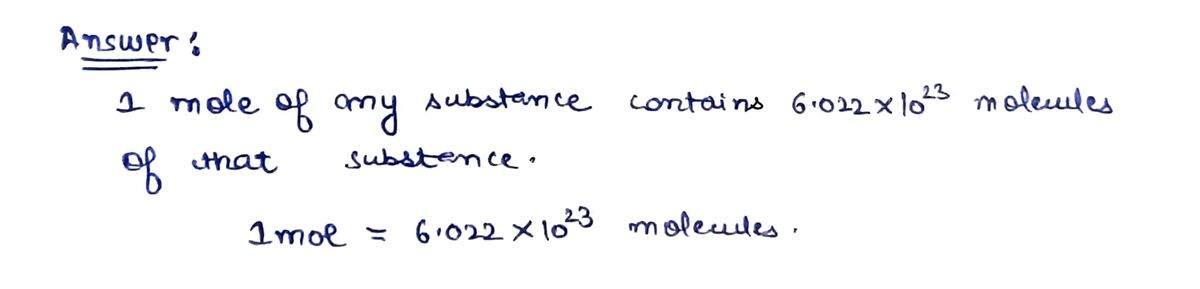 Answer:
1 mole of any substance contains 6.022 × 10²³ molecules
of that substance.
1 mol = 6.022 × 10²³ molecules.